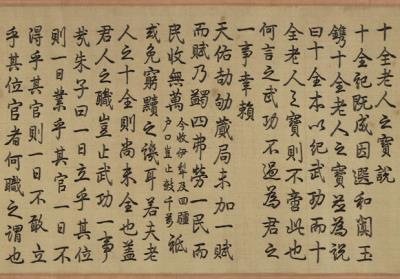 十全老人之寶說
十全記既成因選和闐玉
鐫十全老人之寶並為說
曰十全本以紀武功而十
全老人之寶則不啻此也
何言之武功不過為君之
一事幸賴
天佑劼劬蕆局未加一賦
而賦乃蠲四弗勞一民而
民收無萬今收伊犁及四疆戶口豈止數千萬祗
或免窮黷之譏耳若夫老
人之十全則尚未全也蓋
君人之職豈止武功一事
哉朱子曰一日立乎其位
則一日業乎其官一日不
得乎其官則一日不敢立
乎其位官者何職之謂也